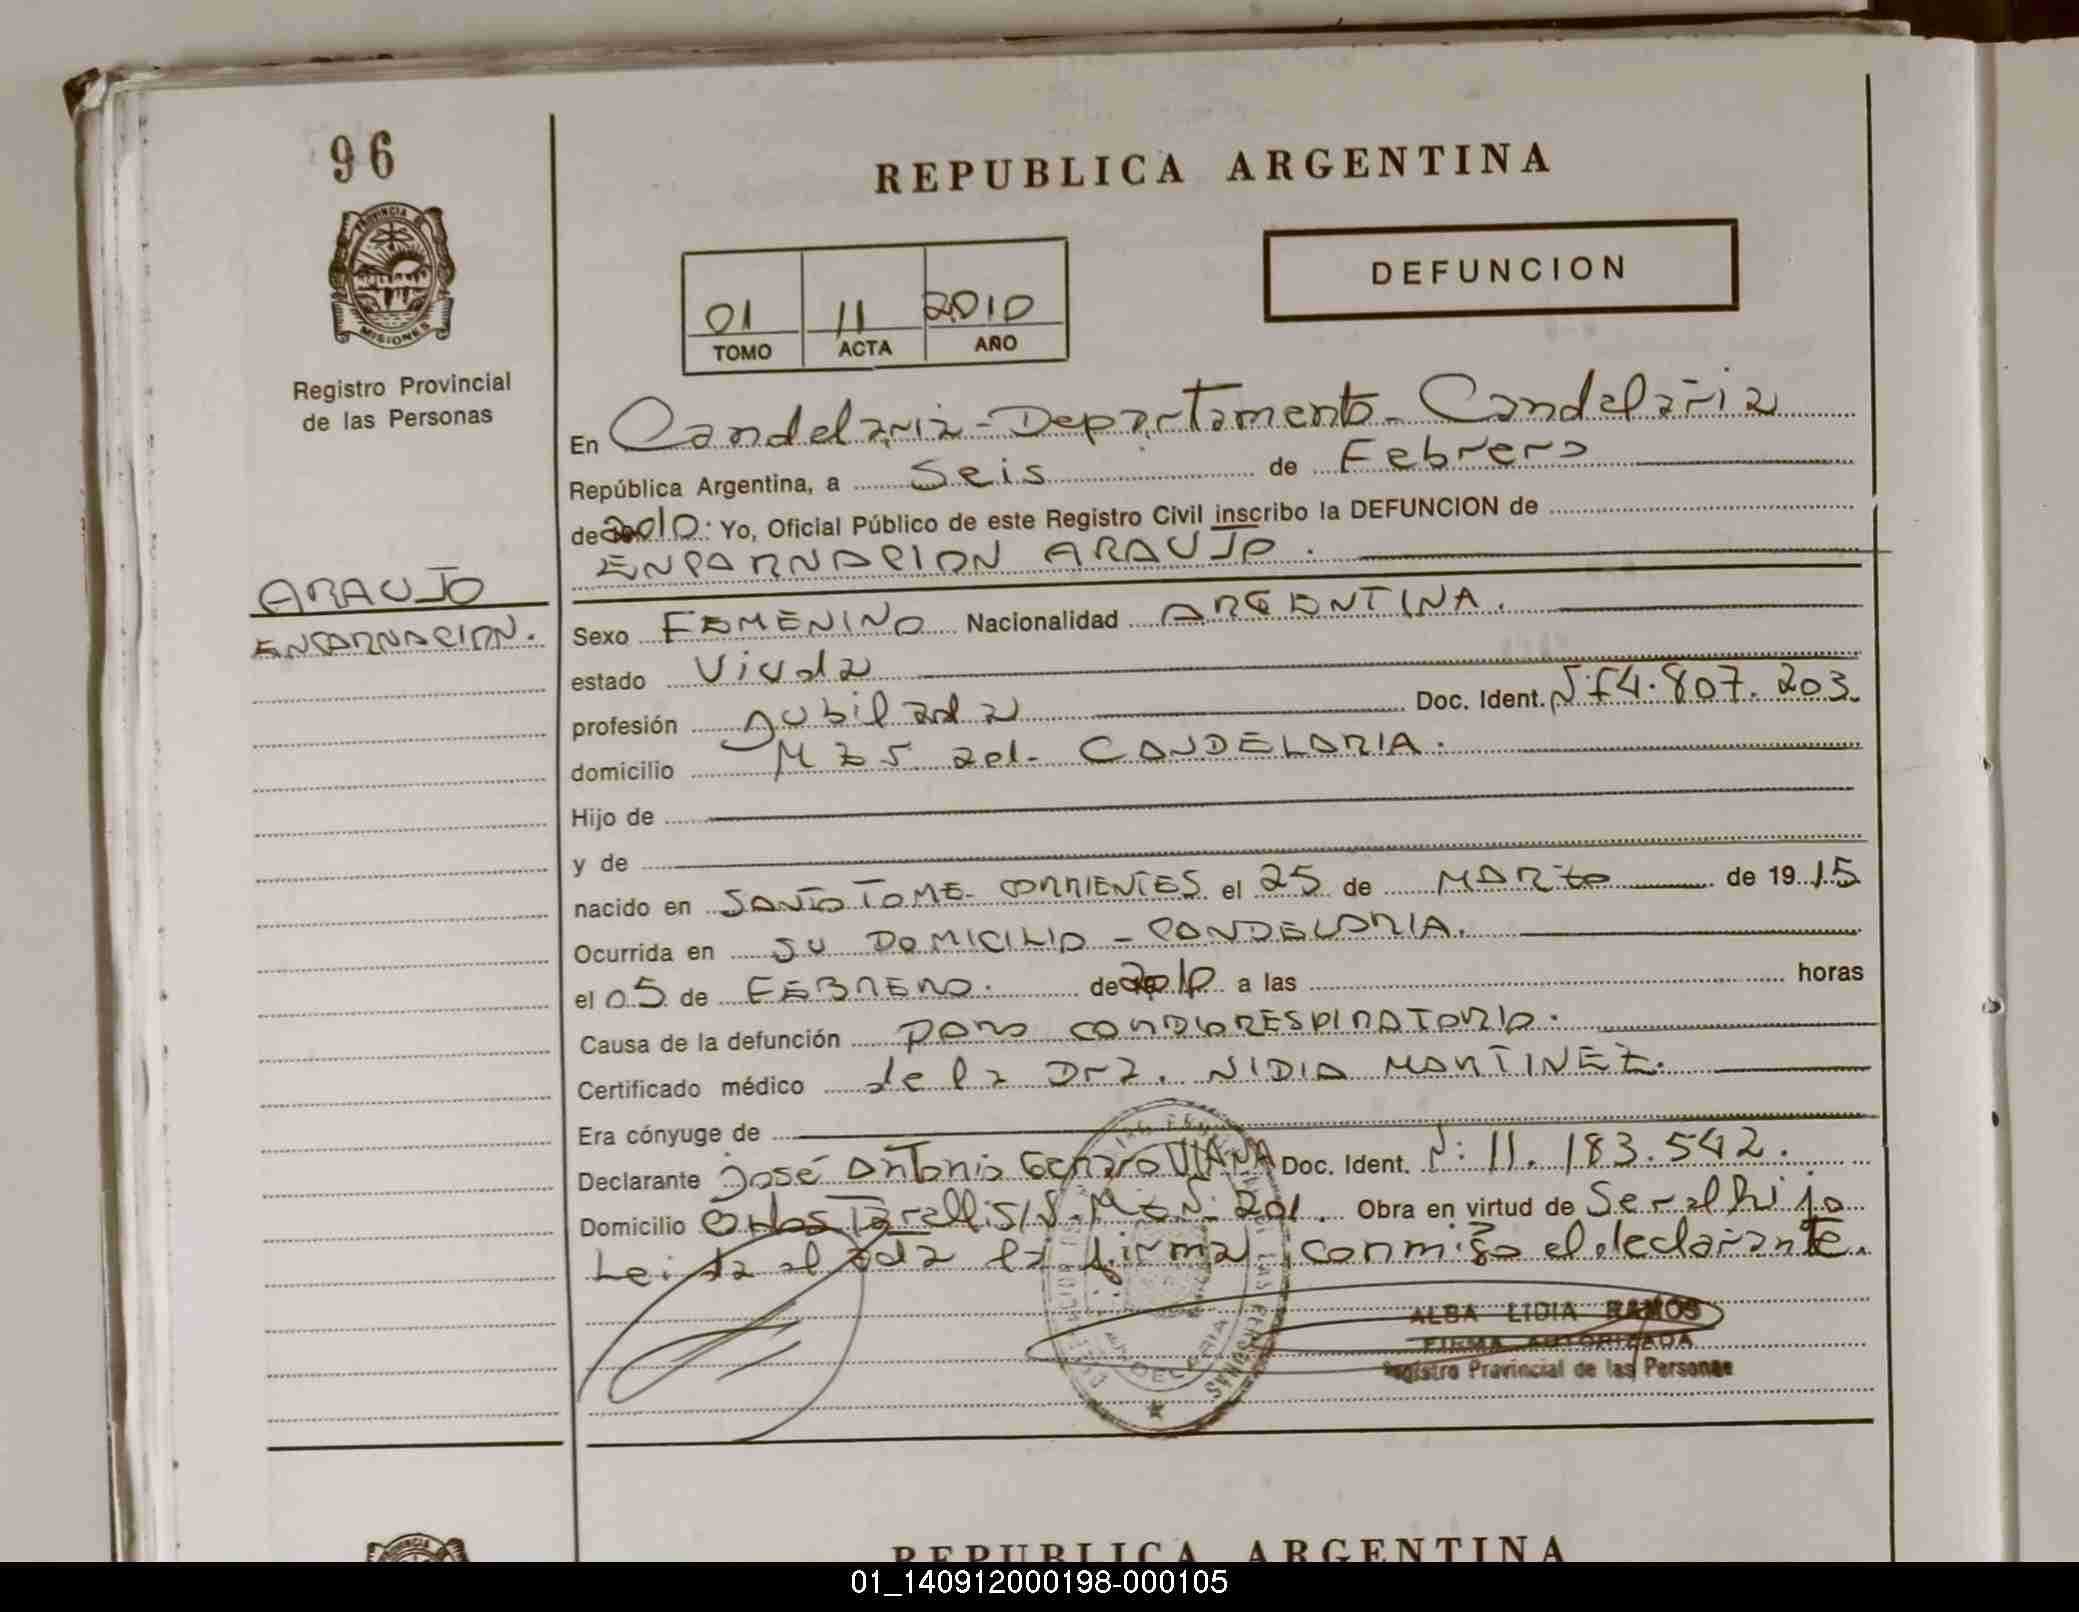 96
REPUBLICA ARGENTINA
PROVINCIA DE
MISIONES
Registro Provincial
de las Personas
01 11 2010
TOMO ACTA AÑO
DEFUNCION
En Candelaria - Departamento - Candelaria
República Argentina, a Seis de Febrero
de 2010. Yo, Oficial Público de este Registro Civil inscribo la DEFUNCION de
ENCARNACION ARAUJO.
ARAUJO
ENCARNACION.
Sexo FEMENINO Nacionalidad ARGENTINA.
estado Viuda
profesión Jubilada Doc. Ident. Nº F4.807.203.
domicilio CANDELARIA.
Hijo de
y de
nacido en SANTO TOME - CORRIENTES el 25 de MARZO de 1915
Ocurrida en SU DOMICILIO - CANDELARIA.
el 05 de FEBRERO. de 2010 a las horas
Causa de la defunción paro CARDIORESPIRATORIO.
Certificado médico de la Dra. NIDIA MARTINEZ.
Era cónyuge de
Declarante José Antonio Genaro VIANA Doc. Ident. N: 11.183.542.
Domicilio Obra en virtud de Ser al hijo
Leida el acta la firma conmigo el declarante.
CANDELARIA
LAS PERSONAS
ALBA LIDIA RAMOS
FIRMA AUTORIZADA
Registro Provincial de las Personas
REPUBLICA ARGENTINA
01_140912000198-000105